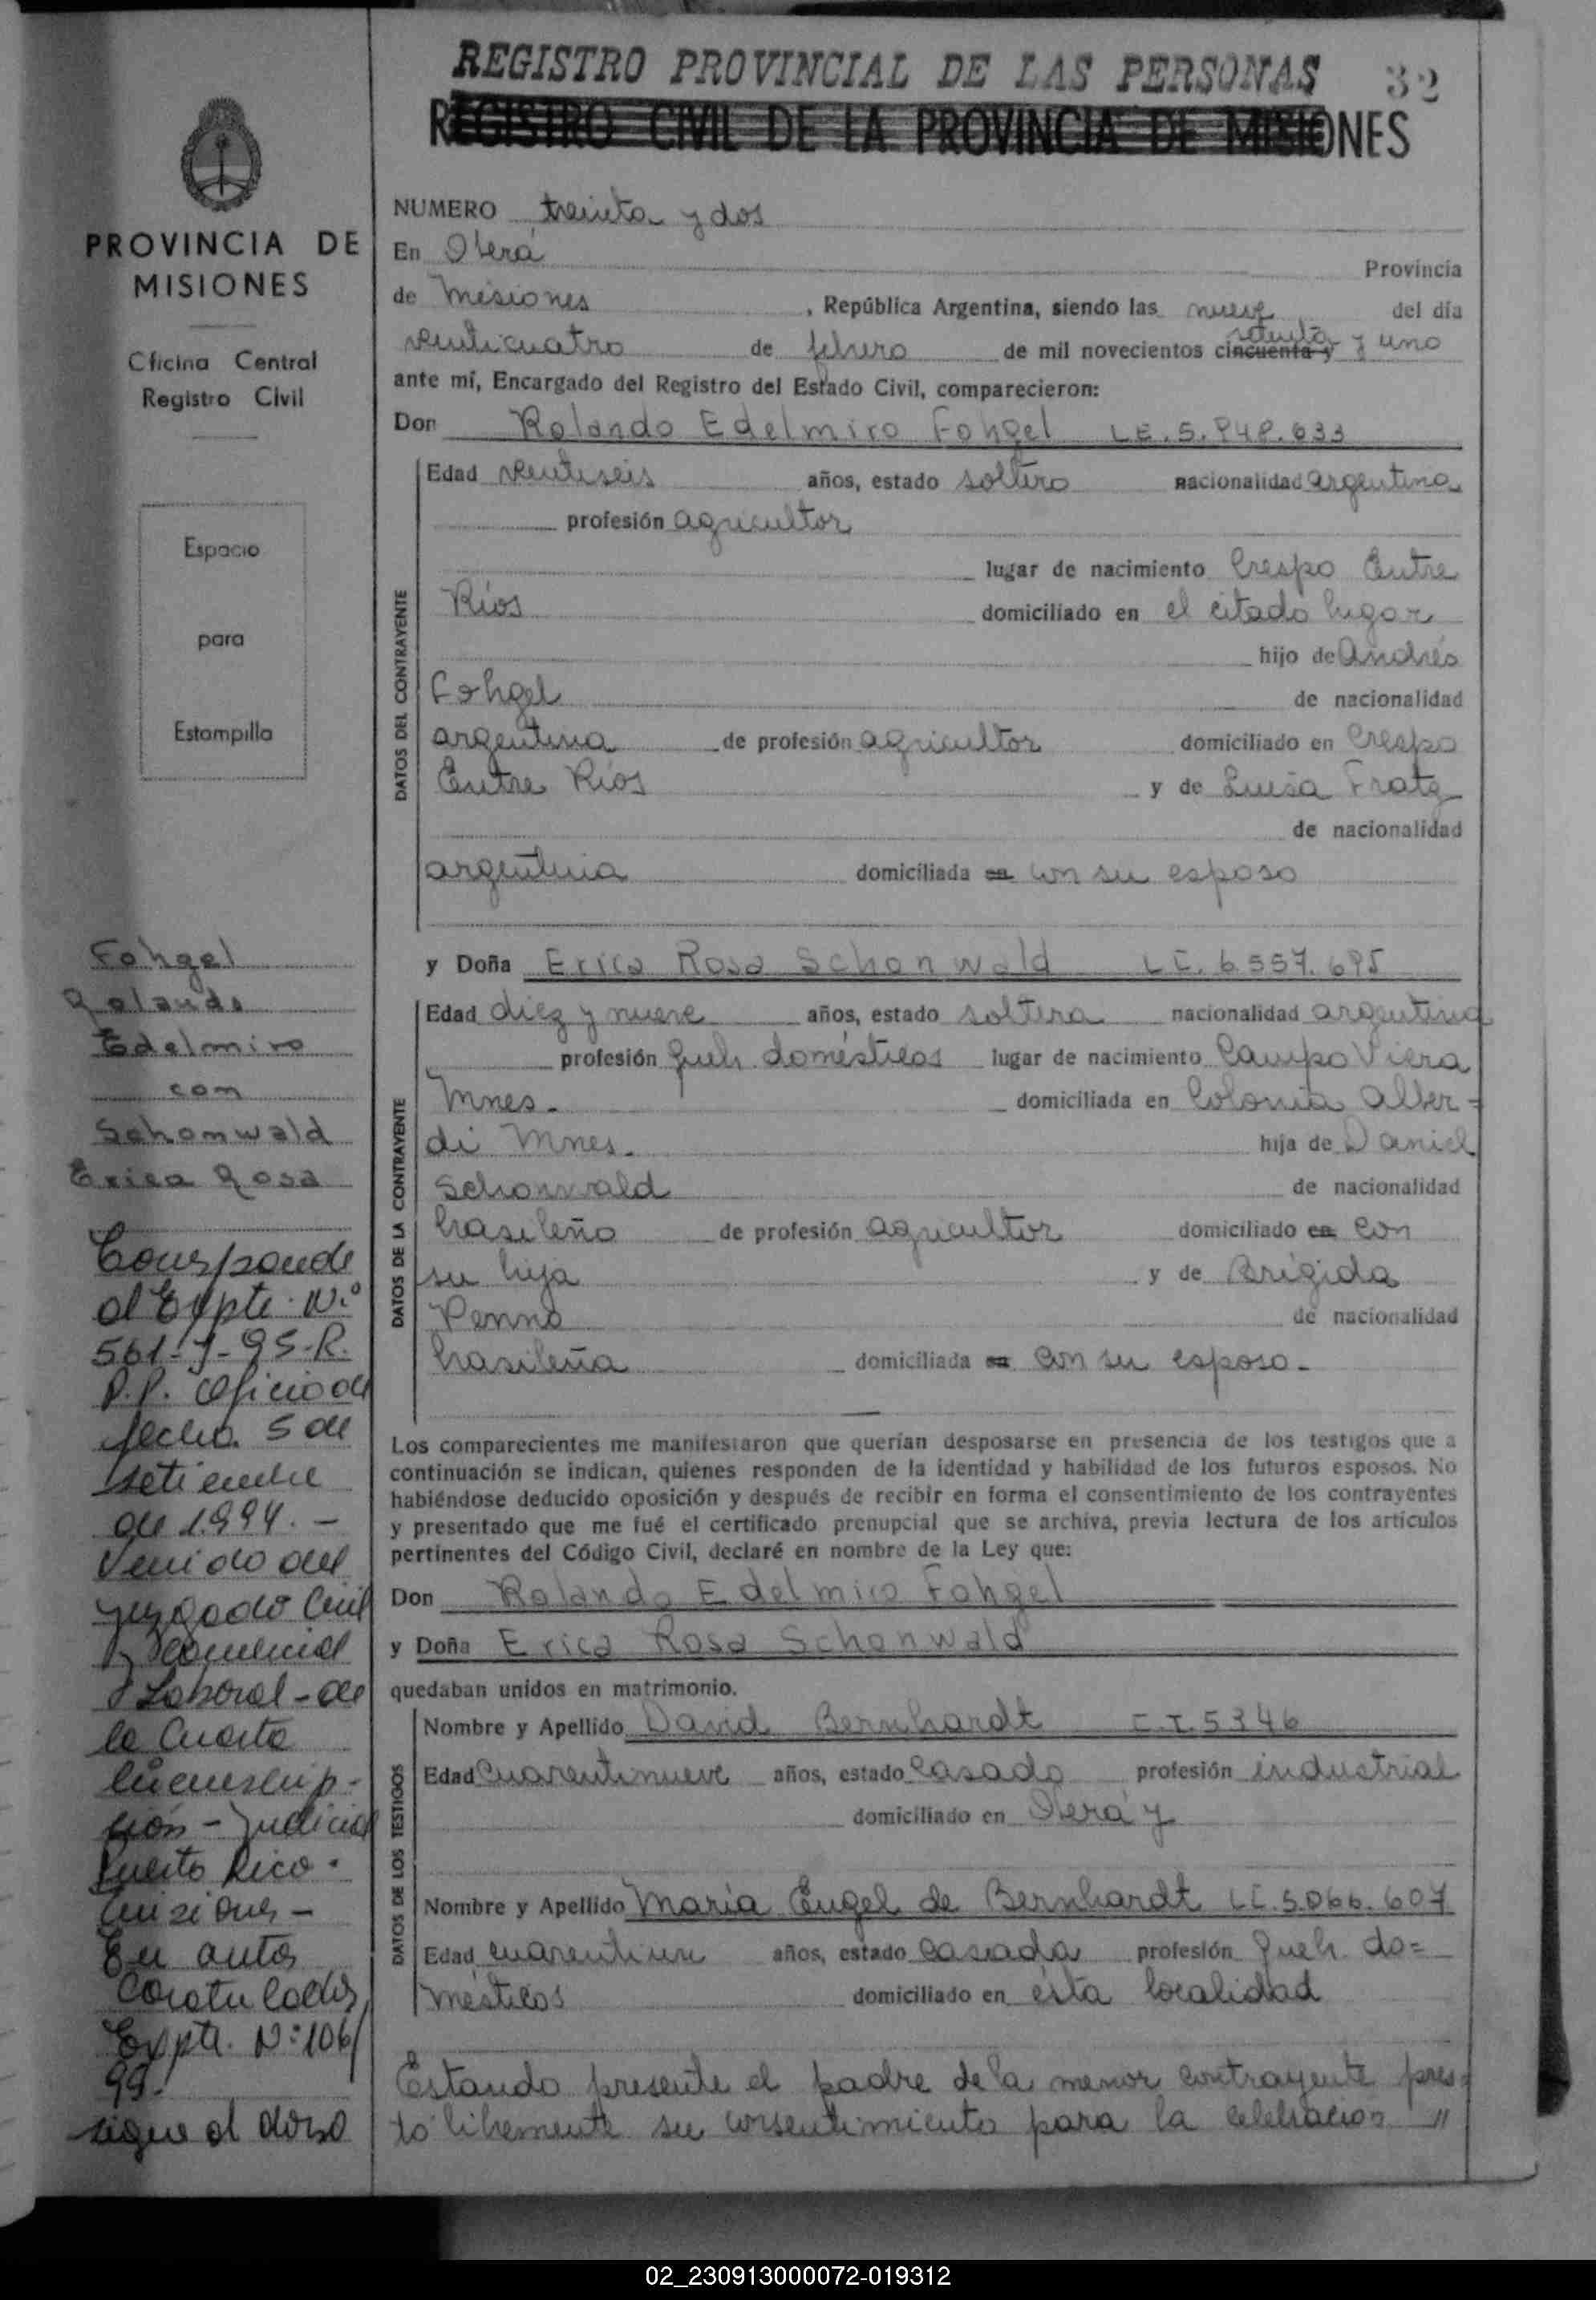 REGISTRO PROVINCIAL DE LAS PERSONAS 32
REGISTRO CIVIL DE LA PROVINCIA DE MISIONES
PROVINCIA DE
MISIONES
Oficina Central
Registro Civil
Espacio
para
Estampilla
Fohgel
Rolando
Edelmiro
con
Schonwald
Erica Rosa
Corresponde
al Expte. N.º
561-J-95-R.
P.P. Oficio de
fecha 5 de
setiembre
de 1994.-
Venido del
Juzgado Civil
y Comercial
y Laboral-de
la Cuarta
Circunscrip-
ción-Judicial
Puerto Rico.
Misiones-
En autos
Caratulados
Expte. Nº 106/
99.
sigue al dorso
NUMERO treinta y dos
En Oberá Provincia
de Misiones, República Argentina, siendo las nueve del día
venticuatro de febrero de mil novecientos cincuenta y setenta y uno
ante mí, Encargado del Registro del Estado Civil, comparecieron:
Don Rolando Edelmiro Fohgel L.E. 5.948.633
DATOS DEL CONTRAYENTE
Edad ventiseis años, estado soltero nacionalidad argentina
profesión agricultor
lugar de nacimiento Crespo Entre
Ríos domiciliado en el citado lugar
hijo de Andrés
Fohgel de nacionalidad
argentina de profesión agricultor domiciliado en Crespo
Entre Ríos y de Luisa Fratz
de nacionalidad
argentina domiciliada en con su esposo
y Doña Erica Rosa Schonwald L.C. 6.557.695
DATOS DE LA CONTRAYENTE
Edad diez y nueve años, estado soltera nacionalidad argentina
profesión queh. domésticos lugar de nacimiento Campo Viera
Mnes. domiciliada en Colonia Alber-
di Mnes. hija de Daniel
Schonwald de nacionalidad
brasileño de profesión agricultor domiciliado en con
su hija y de Brígida
Penno de nacionalidad
brasileña domiciliada en con su esposo-
Los comparecientes me manifestaron que querían desposarse en presencia de los testigos que a
continuación se indican, quienes responden de la identidad y habilidad de los futuros esposos. No
habiéndose deducido oposición y después de recibir en forma el consentimiento de los contrayentes
y presentado que me fué el certificado prenupcial que se archiva, previa lectura de los artículos
pertinentes del Código Civil, declaré en nombre de la Ley que:
Don Rolando Edelmiro Fohgel
y Doña Erica Rosa Schonwald
quedaban unidos en matrimonio.
DATOS DE LOS TESTIGOS
Nombre y Apellido David Bernhardt C.I. 5346
Edad cuarentinueve años, estado casado profesión industrial
domiciliado en Oberá y
Nombre y Apellido María Engel de Bernhardt L.C. 5.066.607
Edad cuarentiun años, estado casada profesión queh. do=
mésticos domiciliado en ésta localidad
Estando presente el padre de la menor contrayente pres=
tó libremente su consentimiento para la celebracion "
02_230913000072-019312